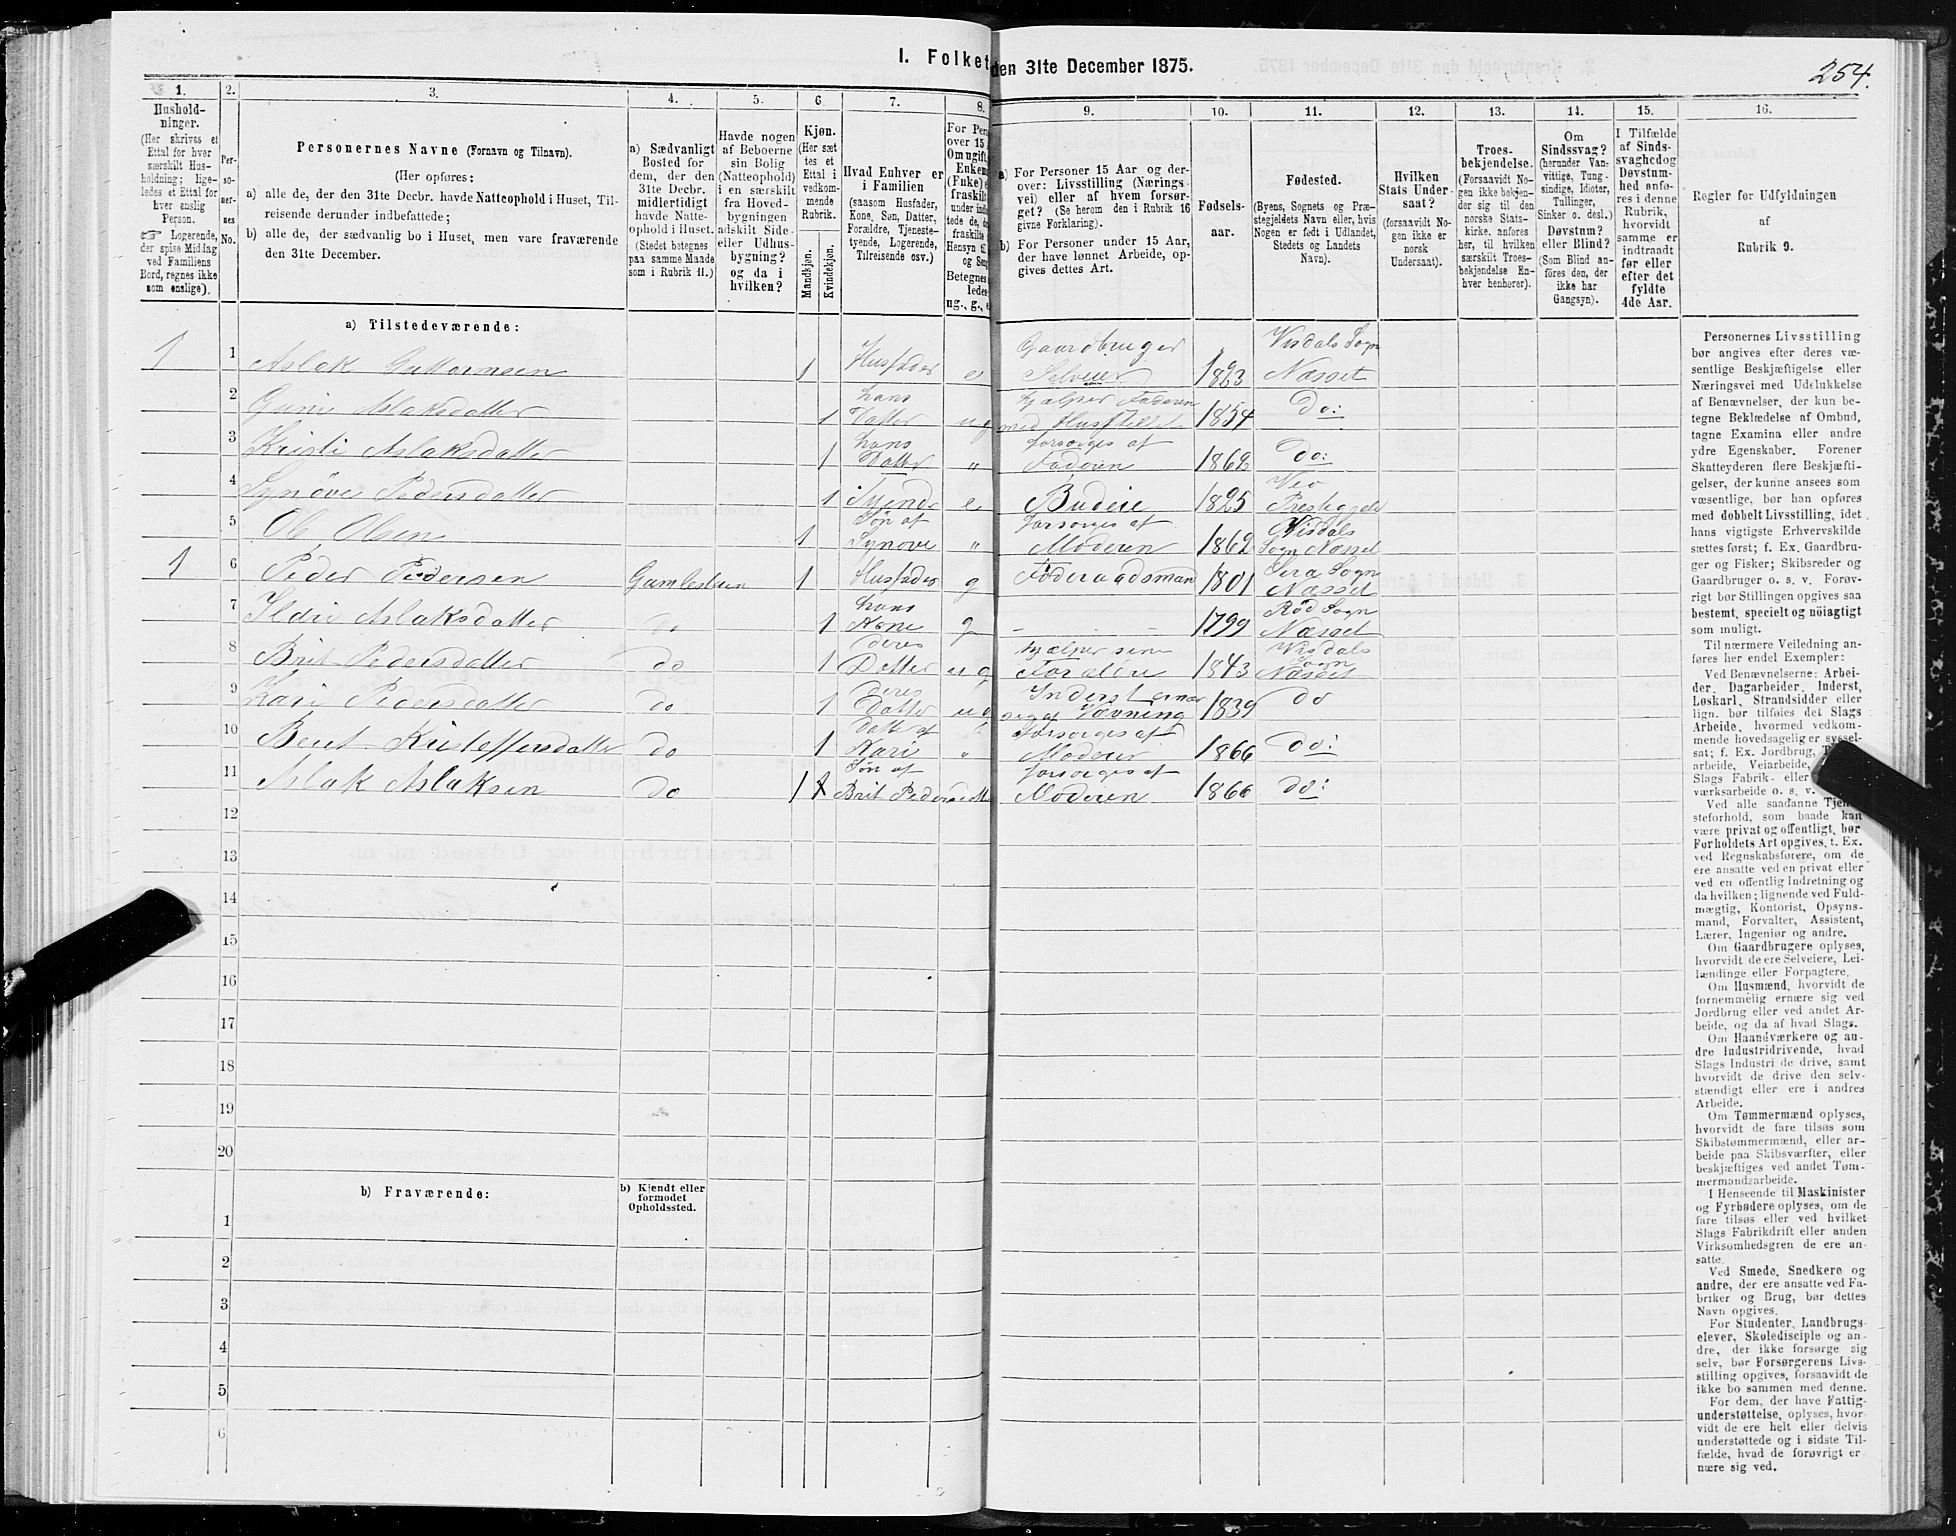 I. Folket den 31te December 1875.
254.
1. 2. 3. 4. 5. 6 7. 8. 9. 10. 11. 12. 13. 14. 15. 16.
Hushold-
ninger.
(Her skrives et
Ettal for hver
særskilt Hus-
holdning; lige-
ledes et Ettal for
hver enslig
Person.
☞ Logerende,
der spise Middag
ved Familiens
Bord, regnes ikke
som enslige).
Per-
so-
ner-
nes
No.
Personernes Navne (Fornavn og Tilnavn).
(Her opføres:
a) alle de, der den 31te Decbr. havde Natteophold i Huset, Til-
reisende derunder indbefattede;
b) alle de, der sædvanlig bo i Huset, men vare fraværende
den 31te December.
a) Sædvanligt
Bosted for
dem, der den
31te Decbr.
midlertidigt
havde Natte-
ophold i Huset.
(Stedet betegnes
paa samme Maade
som i Rubrik 11.)
Havde nogen
af Beboerne
sin Bolig
(Natteophold)
i en særskilt
fra Hoved-
bygningen
adskilt Side-
eller Udhus-
bygning?
og da i
hvilken?
Kjøn.
(Her sæt
tes et
Ettal i
vedkom-
mende
Rubrik.
Mandkjøn.
Kvindekjøn.
Hvad Enhver er
i Familien
(saasom Husfader,
Kone, Søn, Datter,
Forældre, Tjeneste-
tyende, Logerende,
Tilreisende osv.)
For Pers
over 15
Om ugift,
Enkem
(Enke) e
fraskilt
under indb
tede de,
fraskilte
Hensyn ti
og Sen
Betegnes
ledes
ug., g., e
a) For Personer 15 Aar og der-
over: Livsstilling (Nærings-
vei) eller af hvem forsør-
get? (Se herom den i Rubrik 16
givne Forklaring).
b) For Personer under 15 Aar,
der have lønnet Arbeide, op-
gives dettes Art.
Fødsels-
aar.
Fødested.
(Byens, Sognets og Præ-
stegjeldets Navn eller, hvis
Nogen er født i Udlandet,
Stedets og Landets
Navn).
Hvilken
Stats Under-
saat?
(forsaavidt No-
gen ikke er
norsk
Undersaat).
Troes-
bekjendelse.
(Forsaavidt No-
gen ikke bekjen-
der sig til den
norske Stats-
kirke, anføres
her, til hvilken
særskilt Troes-
bekjendelse En-
hver henhører).
Om
Sindssvag?
(herunder Van-
vittige, Tung-
sindige, Idioter,
Tullinger,
Sinker o. desl.)
Døvstum?
eller Blind?
(Som Blind an-
føres den, der
ikke har
Gangsyn).
I Tilfælde
af Sinds-
svaghed og
Døvstum-
hed anfø-
res i denne
Rubrik,
hvorvidt
samme er
indtraadt
før eller
efter det
fyldte
4de Aar.
Regler for Udfyldningen
af
Rubrik 9.
a) Tilstedeværende:
1 1 Aslak Guttormsen 1 Husfader e Gaardbruger Selveier 1823 Visdals Sogn Næsset
2 Guri Aslaksdatter 1 hans Datter ug hjælper Faderen med Husstellet 1854 Do:
3 Kristi Aslaksdatter 1 hans Datter " forsørges af Faderen 1862 Do:
4 Synøve Pedersdatter 1 Tyende e Budeie 1825 Veø Prestegjeld
5 Ole Olsen 1 Søn af Synøve " forsørges af Moderen 1862 Visdals Sogn Næsset
1 6 Peder Pedersen Gamlestuen 1 Husfader g Føderaadsmand 1801 Sira Sogn Næsset
7 Ildri Aslaksdatter do 1 hans Kone g - - 1799 Rød Sogn Næsset
8 Brit Pedersdatter do 1 deres Datter ug hjælper sine Forældre 1843 Visdals Sogn Næsset
9 Kari Pedersdatter do 1 deres Datter ug Inderst ernær sig af Vævning 1839 do
10 Beret Kristoffersdatter do 1 Datter af Kari " Forsørges af Moderen 1866 do:
11 Aslak Aslaksen do 1 Søn af Brit Pedersdatter forsørges af Moderen 1866 do:
12
13
14
15
16
17
18
19
20
b) Fraværende:
b) Kjendt eller
formodet
Opholdssted.
1
2
3
4
5
6
Personernes Livsstilling
bør angives efter deres væ-
sentlige Beskjæftigelse eller
Næringsvei med Udelukkelse
af Benævnelser, der kun be-
tegne Beklædelse af Ombud,
tagne Examina eller andre
ydre Egenskaber. Forener
Skatteyderen flere Beskjæfti-
gelser, der kunne ansees som
væsentlige, bør han opføres
med dobbelt Livsstilling, idet
hans vigtigste Erhvervskilde
sættes først; f. Ex. Gaardbru-
ger og Fisker; Skibsreder og
Gaardbruger o. s. v. Forøv-
rigt bør Stillingen opgives saa
bestemt, specielt og nöiagtigt
som muligt.
Til nærmere Veiledning an-
føres her endel Exempler:
Ved Benævnelserne: Arbei-
der, Dagarbeider, Inderst,
Løskarl, Strandsidder eller
lign. bør tilføies det Slags
Arbeide, hvormed vedkom-
mende hovedsagelig er syssel-
sat; f. Ex. Jordbrug,
arbeide, Veiarbeide,
Slags Fabrik- eller
værksarbeide o. s. v.
Ved alle saadanne Tjene-
steforhold, som baade kan
være privat og offentligt, bør
Forholdets Art opgives, t. Ex.
ved Regnskabsførere, om de
ere ansatte ved en privat eller
ved en offentlig Indretning og
da hvilken; lignende ved Fuld-
mægtig, Kontorist, Opsyns-
mand, Forvalter, Assistent,
Lærer, Ingeniør og andre.
Om Gaardbrugere oplyses,
hvorvidt de ere Selveiere, Lei-
lændinge eller Forpagtere.
Om Husmænd, hvorvidt de
fornemmelig ernære sig ved
Jordbrug eller ved andet Ar-
beide, og da af hvad Slags.
Om Haandværkere og an-
dre Industridrivende, hvad
Slags Industri de drive, samt
hvorvidt de drive den selv-
stændigt eller ere i andres
Arbeide.
Om Tømmermænd oplyses,
hvorvidt de fare tilsøs som
Skibstømmermænd, eller ar-
beide paa Skibsværfter, eller
beskjæftiges ved andet Tøm-
mermandsarbeide.
I Henseende til Maskinister
og Fyrbødere oplyses, om de
fare tilsøs eller ved hvilket
Slags Fabrikdrift eller anden
Virksomhedsgren de ere an-
satte.
Ved Smede, Snedkere og
andre, der ere ansatte ved Fa-
briker og Brug, bør dettes
Navn opgives.
For Studenter, Landbrugs-
elever, Skoledisciple og an-
dre, der ikke forsørge sig
selv, bør Forsørgerens Livs-
stilling opgives, forsaavidt de
ikke bo sammen med denne.
For dem, der have Fattig-
understøttelse, oplyses, hvor-
vidt de ere helt eller delvis
understøttede og i sidste Til-
fælde, hvad de forøvrigt er-
nære sig ved.